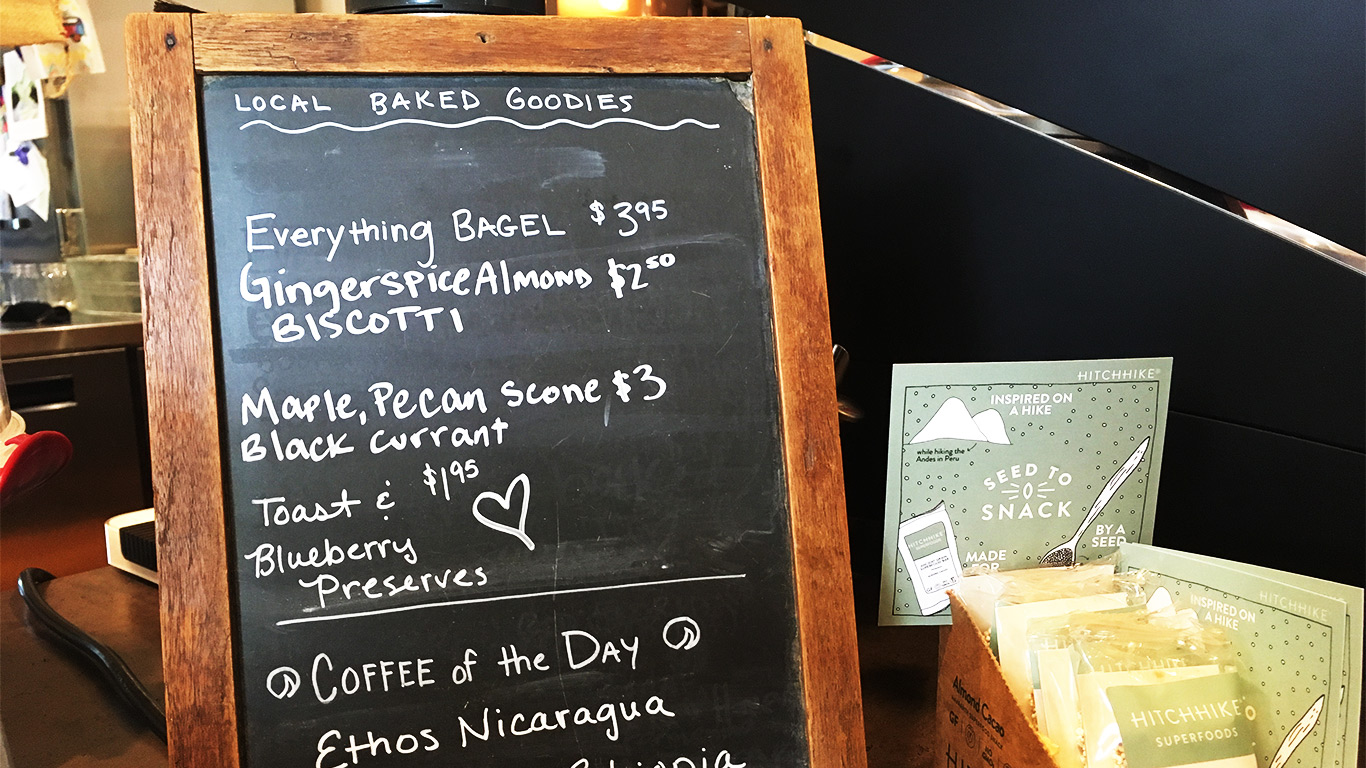 LOCAL BAKED GOODIES
Everything BAGEL $3.95
Gingerspice Almond $2.50
BISCOTTI
Maple, Pecan Scone $3
Black currant
Toast & $1.95
Blueberry
Preserves
COFFEE of the DAY
Ethos Nicaragua
Ethiopia
HITCHHIKE®
INSPIRED ON
A HIKE
while hiking the
Andes in Peru
SEED TO
SNACK
BY A
SEED
MADE
FOR
HITCHHIKE
HITCHHIKE
INSPIRED ON
A HIKE
Almond Cacao
GF
HITCHHIKE®
SUPERFOODS